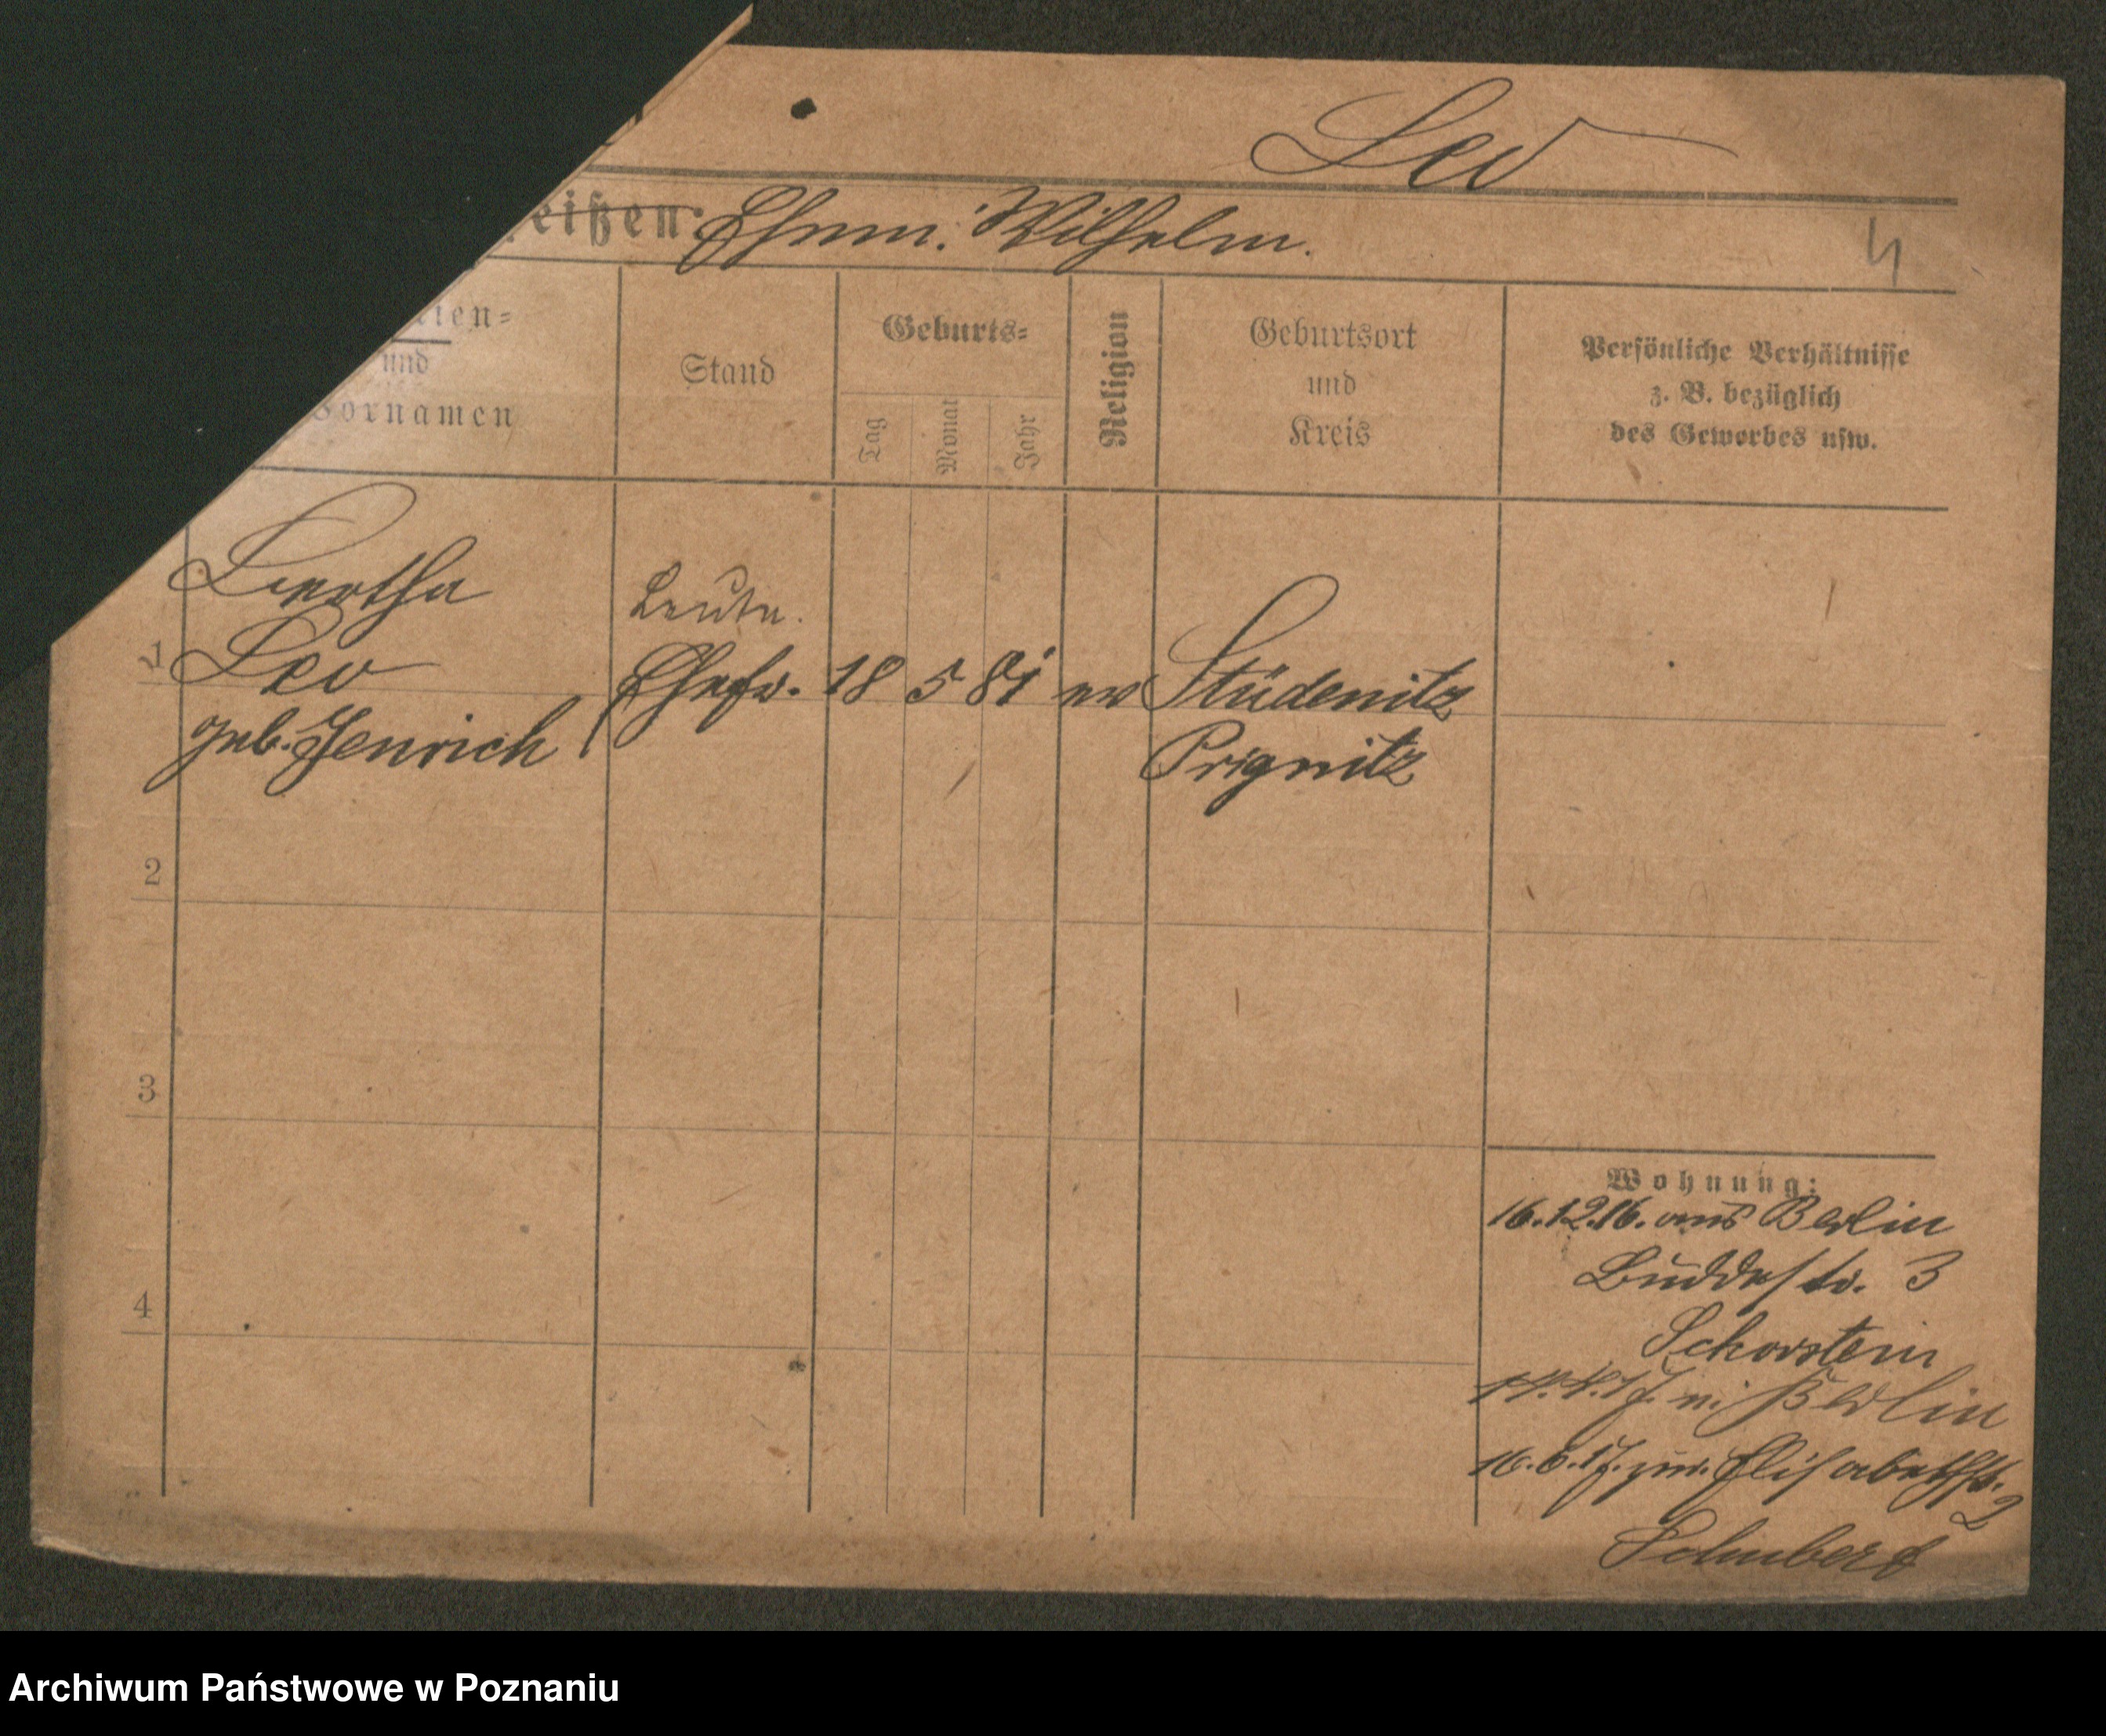 Leo
eißen: Ehem. Wilhelm.
4
ien=
und
Vornamen
Stand
Geburts=
Tag
Monat
Jahr
Religion
Geburtsort
und
Kreis
Persönliche Verhältnisse
z. B. bezüglich
des Gewerbes usw.
1
Bertha
Leo
geb. Jenrich
Leutn.
Ehefr.
18 5 81 ev
Stüdenitz
Prignitz
2
3
4
Wohnung:
16.12.16. aus Berlin
Buddestr. 3
Schorstein
14.4.17. n. Berlin
16.6.17. zur. Elisabethstr. 2
Schubert
Archiwum Państwowe w Poznaniu